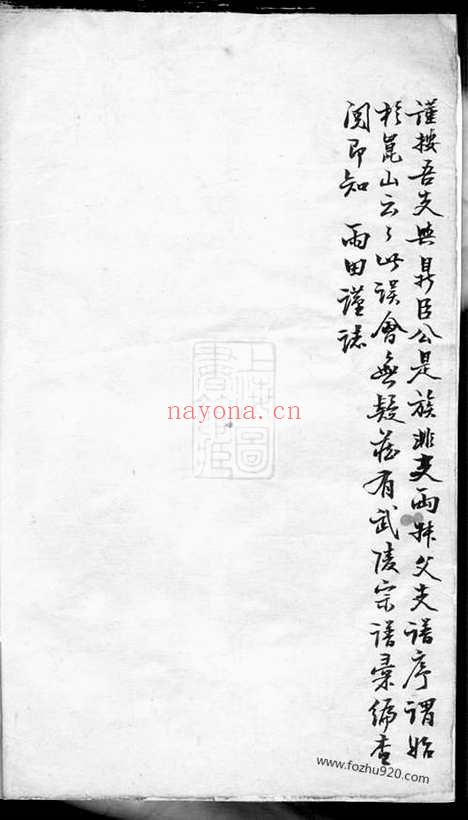 謹按吾支與鼎臣公是族非支雨其父支譜序謂始
於崑山云々此誤會無疑舊有武陵宗譜彙編查
閱即知 雨田謹誌
nayona.cn
www.fozhu920.com